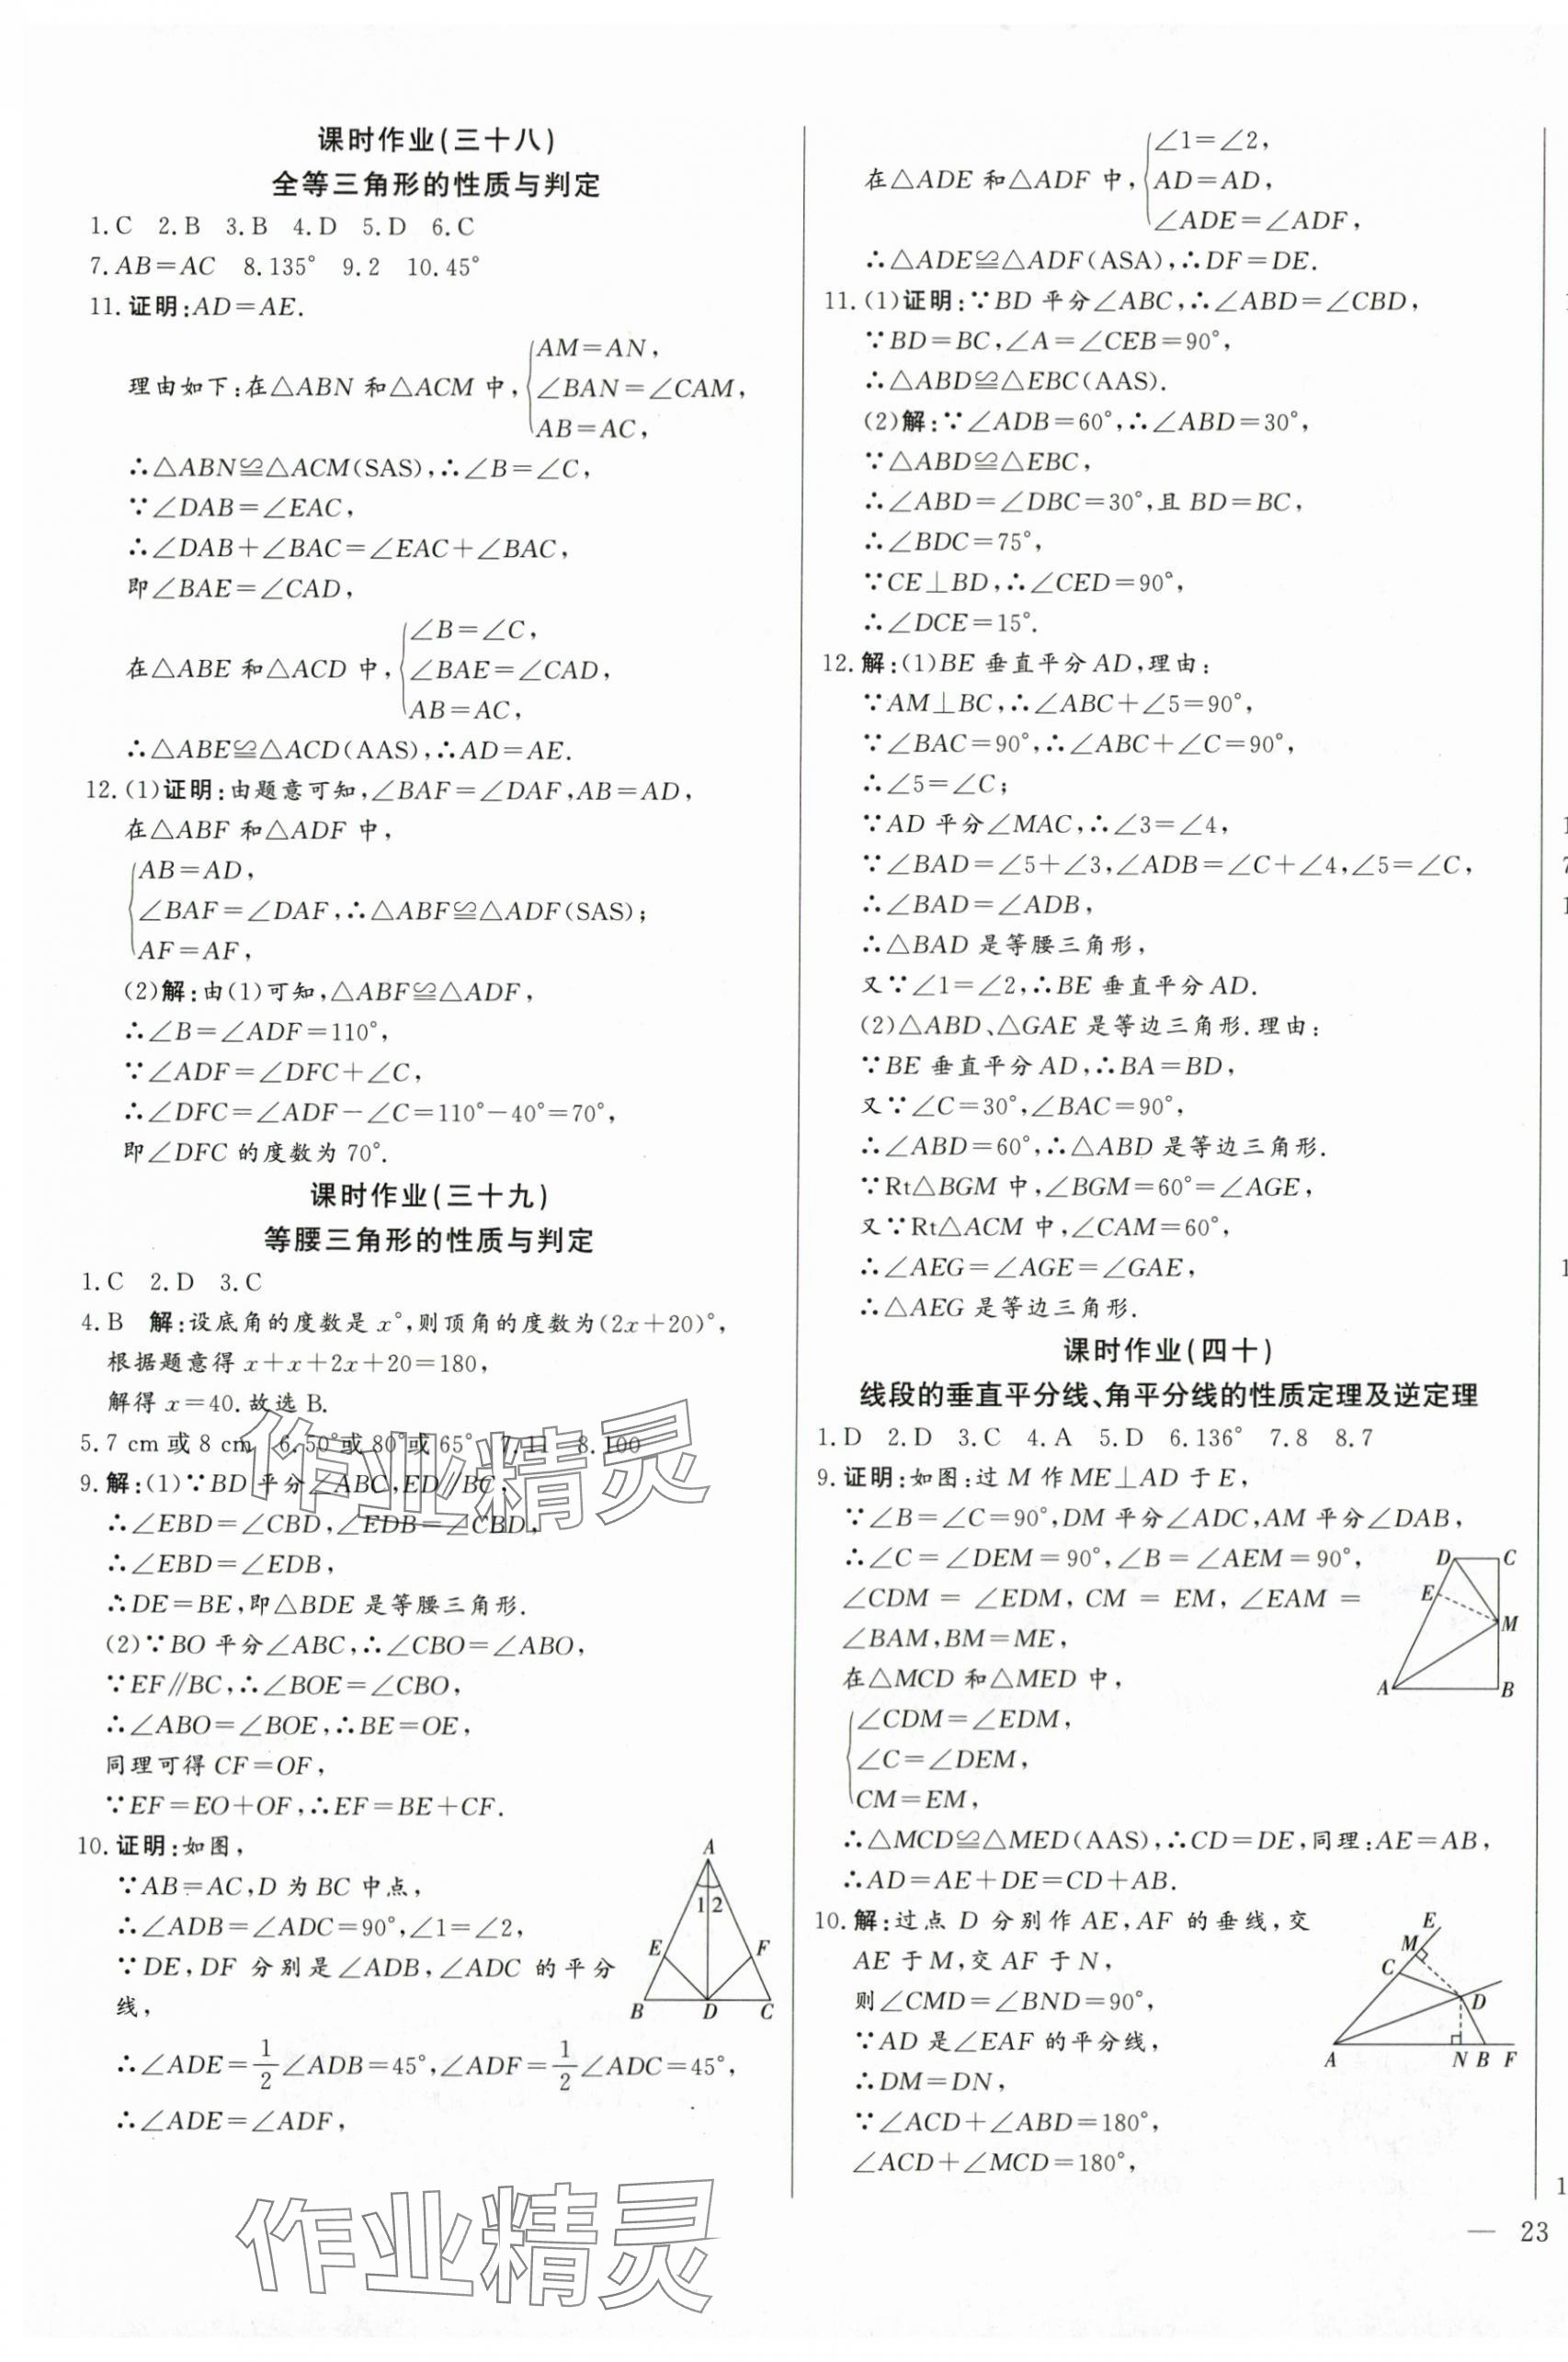 课时作业(三十八)
全等三角形的性质与判定
1.C 2.B 3.B 4.D 5.D 6.C
7.AB=AC 8.135° 9.2 10.45°
11.证明:AD=AE.
理由如下:在△ABN 和△ACM 中,
{AM=AN,
∠BAN=∠CAM,
AB=AC,
∴△ABN≌△ACM(SAS),∴∠B=∠C,
∵∠DAB=∠EAC,
∴∠DAB+∠BAC=∠EAC+∠BAC,
即∠BAE=∠CAD,
在△ABE 和△ACD 中,
{∠B=∠C,
∠BAE=∠CAD,
AB=AC,
∴△ABE≌△ACD(AAS),∴AD=AE.
12.(1)证明:由题意可知,∠BAF=∠DAF,AB=AD,
在△ABF 和△ADF 中,
{AB=AD,
∠BAF=∠DAF,∴△ABF≌△ADF(SAS);
AF=AF,
(2)解:由(1)可知,△ABF≌△ADF,
∴∠B=∠ADF=110°,
∵∠ADF=∠DFC+∠C,
∴∠DFC=∠ADF-∠C=110°-40°=70°,
即∠DFC 的度数为 70°.
课时作业(三十九)
等腰三角形的性质与判定
1.C 2.D 3.C
4.B 解:设底角的度数是 x°,则顶角的度数为(2x+20)°,
根据题意得 x+x+2x+20=180,
解得 x=40.故选 B.
5.7 cm 或 8 cm 6.50°或 80°或 65° 7.11 8.100
9.解:(1)∵BD 平分∠ABC,ED∥BC,
∴∠EBD=∠CBD,∠EDB=∠CBD,
∴∠EBD=∠EDB,
∴DE=BE,即△BDE 是等腰三角形.
(2)∵BO 平分∠ABC,∴∠CBO=∠ABO,
∵EF∥BC,∴∠BOE=∠CBO,
∴∠ABO=∠BOE,∴BE=OE,
同理可得 CF=OF,
∵EF=EO+OF,∴EF=BE+CF.
10.证明:如图,
∵AB=AC,D 为 BC 中点,
∴∠ADB=∠ADC=90°,∠1=∠2,
∵DE,DF 分别是∠ADB,∠ADC 的平分
线,
∴∠ADE=1/2∠ADB=45°,∠ADF=1/2∠ADC=45°,
∴∠ADE=∠ADF,
A
1 2
E F
B D C
在△ADE 和△ADF 中,
{∠1=∠2,
AD=AD,
∠ADE=∠ADF,
∴△ADE≌△ADF(ASA),∴DF=DE.
11.(1)证明:∵BD 平分∠ABC,∴∠ABD=∠CBD,
∵BD=BC,∠A=∠CEB=90°,
∴△ABD≌△EBC(AAS).
(2)解:∵∠ADB=60°,∴∠ABD=30°,
∵△ABD≌△EBC,
∴∠ABD=∠DBC=30°,且 BD=BC,
∴∠BDC=75°,
∵CE⊥BD,∴∠CED=90°,
∴∠DCE=15°.
12.解:(1)BE 垂直平分 AD,理由:
∵AM⊥BC,∴∠ABC+∠5=90°,
∵∠BAC=90°,∴∠ABC+∠C=90°,
∴∠5=∠C;
∵AD 平分∠MAC,∴∠3=∠4,
∵∠BAD=∠5+∠3,∠ADB=∠C+∠4,∠5=∠C,
∴∠BAD=∠ADB,
∴△BAD 是等腰三角形,
又∵∠1=∠2,∴BE 垂直平分 AD.
(2)△ABD、△GAE 是等边三角形.理由:
∵BE 垂直平分 AD,∴BA=BD,
又∵∠C=30°,∠BAC=90°,
∴∠ABD=60°,∴△ABD 是等边三角形.
∵Rt△BGM 中,∠BGM=60°=∠AGE,
又∵Rt△ACM 中,∠CAM=60°,
∴∠AEG=∠AGE=∠GAE,
∴△AEG 是等边三角形.
课时作业(四十)
线段的垂直平分线、角平分线的性质定理及逆定理
1.D 2.D 3.C 4.A 5.D 6.136° 7.8 8.7
9.证明:如图:过 M 作 ME⊥AD 于 E,
∵∠B=∠C=90°,DM 平分∠ADC,AM 平分∠DAB,
∴∠C=∠DEM=90°,∠B=∠AEM=90°,
∠CDM=∠EDM,CM=EM,∠EAM=
∠BAM,BM=ME,
在△MCD 和△MED 中,
{∠CDM=∠EDM,
∠C=∠DEM,
CM=EM,
∴△MCD≌△MED(AAS),∴CD=DE,同理:AE=AB,
∴AD=AE+DE=CD+AB.
D C
E
M
A B
10.解:过点 D 分别作 AE,AF 的垂线,交
AE 于 M,交 AF 于 N,
则∠CMD=∠BND=90°,
∵AD 是∠EAF 的平分线,
∴DM=DN,
∵∠ACD+∠ABD=180°,
∠ACD+∠MCD=180°,
E
M
C
D
A N B F
— 23
作业精灵
作业精灵